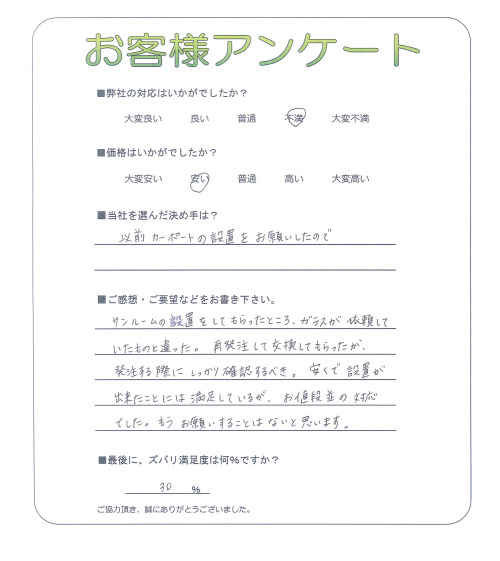 お客様アンケート
■弊社の対応はいかがでしたか?
大変良い 良い 普通 不満 大変不満
■価格はいかがでしたか?
大変安い 安い 普通 高い 大変高い
■当社を選んだ決め手は?
以前 カーポートの設置を お願いしたので
■ご感想・ご要望などをお書き下さい。
サンルームの設置をしてもらったところ、ガラスが 依頼して
いたものと違った。 再発注して交換してもらったが、
発注する際に しっかり確認するべき。 安くで 設置が
出来たことには満足しているが、 お値段並の 対応
でした。もう お願いすることは ないと思います。
■最後に、ズバリ満足度は何%ですか?
30 %
ご協力頂き、誠にありがとうございました。